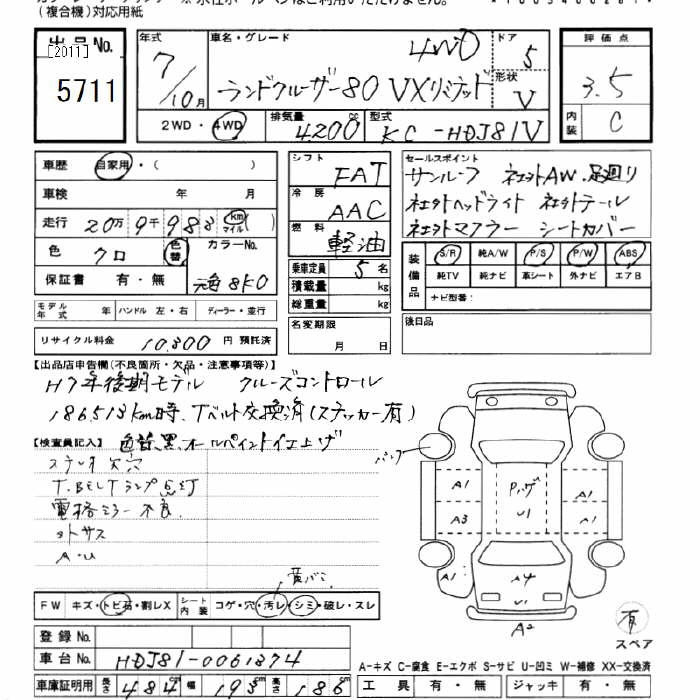 (複合機)対応用紙
出品No.
[2011]
5711
年式
7/10月
車名・グレード
4WD
ランドクルーザー80 VXリミテッド
ドア
5
形状
V
2WD・4WD
排気量
4200cc
型式
KC-HDJ81V
評価点
3.5
内装
C
車歴 自家用・( )
車検 年 月
走行 20万9千983 km マイル ( )
色 クロ 色替 カラーNo.
保証書 有・無 元色8K0
モデル年式 年 ハンドル 左・右 ディーラー・並行
リサイクル料金 10,800円 預託済
シフト FAT
冷房 AAC
燃料 軽油
乗車定員 5名
積載量 kg
総重量 kg
名変期限
月 日
セールスポイント
サンルーフ 社外AW、足廻り
社外ヘッドライト 社外テール
社外マフラー シートカバー
装備品
S/R 純A/W P/S P/W ABS
純TV 純ナビ 革シート 外ナビ エアB
ナビ型番:
後日品
【出品店申告欄(不良箇所・欠品・注意事項等)】
H7年後期モデル クルーズコントロール
186513km時、Tベルト交換済(ステッカー有)
【検査員記入】 色替黒、オールペイント仕上げ
ステレオ欠穴
T.BELTランプ点灯
電格ミラー不良
外サス
A・U
パンク
A1
A3
Pハゲ
U1
A1
A1
A1
A1
A4
U1
A2
黄バミ
FW キズ・トビ石・割レX シート内装 コゲ・穴・汚レ・シミ・破レ・スレ
有
スペア
登録No.
車台No. HDJ81-0061374
車庫証明用 長さ 484cm 幅 193cm 高さ 186cm
A-キズ C-腐食 E-エクボ S-サビ U-凹ミ W-補修 XX-交換済
工具 有・無 ジャッキ 有・無